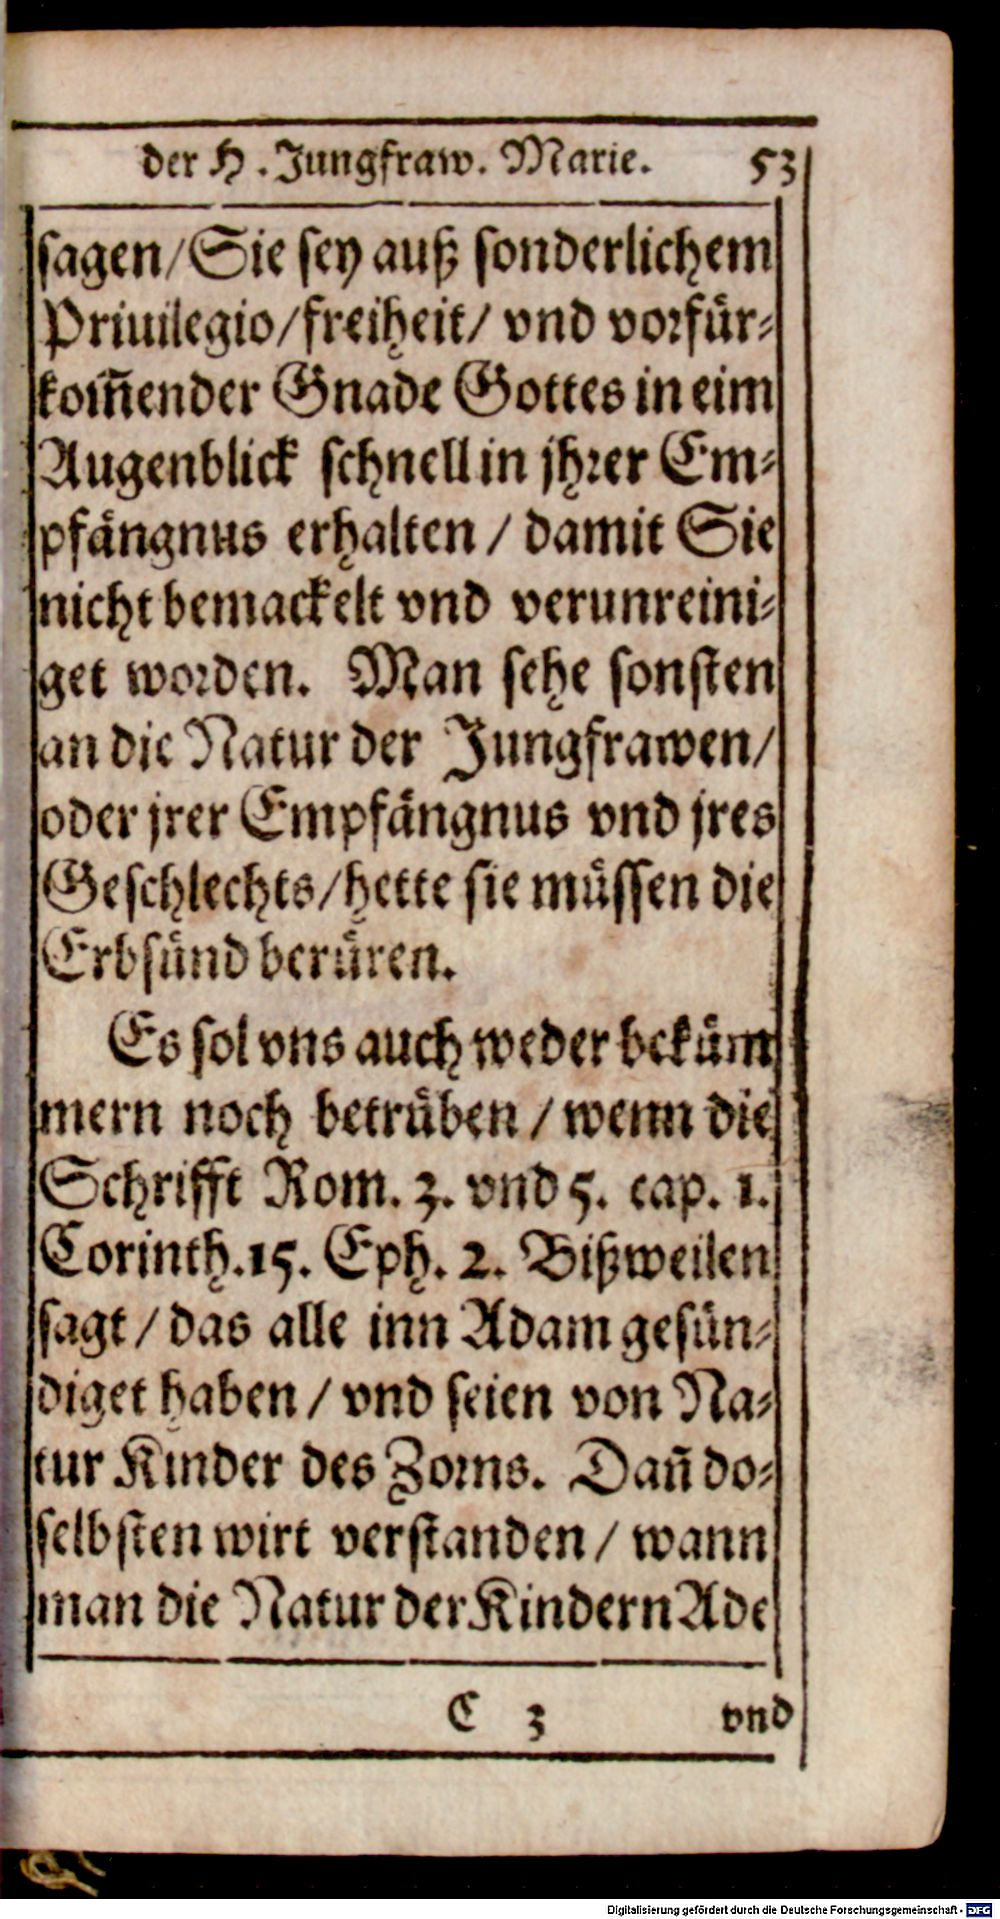 der H. Jungfraw. Marie. 53
sagen/ Sie sey auß sonderlichem
Priuilegio/ freiheit/ vnd vorfür-
kom̃ender Gnade Gottes in eim
Augenblick schnell in jhrer Em-
pfängnus erhalten / damit Sie
nicht bemackelt vnd verunreini-
get worden. Man sehe sonsten
an die Natur der Jungfrawen/
oder jrer Empfängnus vnd jres
Geschlechts/ hette sie müssen die
Erbsünd berüren.
Es sol vns auch weder beküm
mern noch betrüben / wenn die
Schrifft Rom. 3. vnd 5. cap. 1.
Corinth. 15. Eph. 2. Bißweilen
sagt / das alle inn Adam gesün-
diget haben / vnd seien von Na-
tur Kinder des Zorns. Dañ do-
selbsten wirt verstanden / wann
man die Natur der Kindern Ade
C 3 vnd
Digitalisierung gefördert durch die Deutsche Forschungsgemeinschaft - DFG